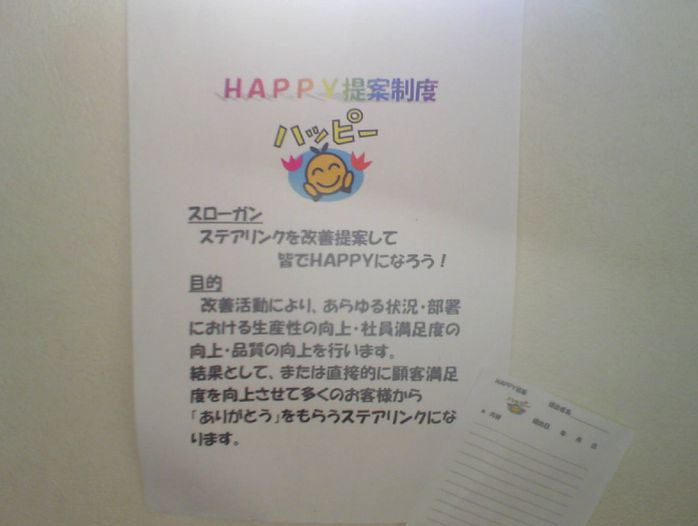 HAPPY提案制度
ハッピー
スローガン
ステアリンクを改善提案して
皆でHAPPYになろう！
目的
改善活動により、あらゆる状況・部署
における生産性の向上・社員満足度の
向上・品質の向上を行います。
結果として、または直接的に顧客満足
度を向上させて多くのお客様から
「ありがとう」をもらうステアリンクにな
ります。
HAPPY提案
提出者名
提出日 年 月 日
内容